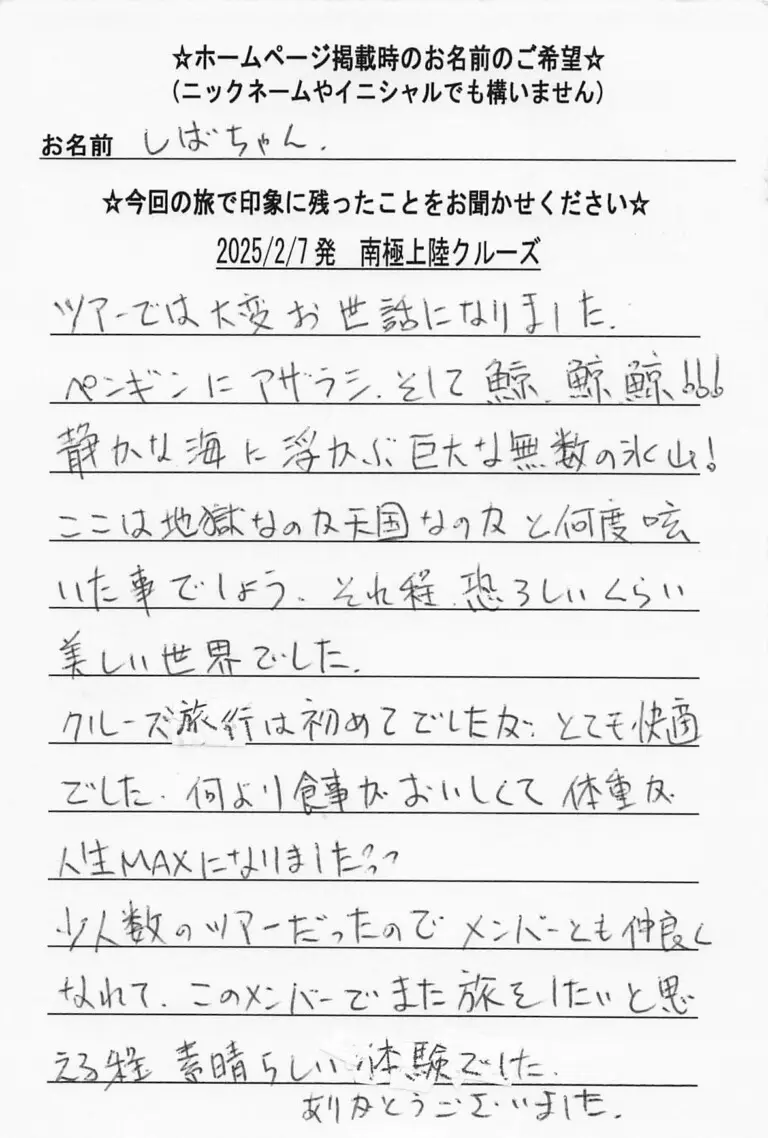 ☆ホームページ掲載時のお名前のご希望☆
(ニックネームやイニシャルでも構いません)
お名前 しばちゃん.
☆今回の旅で印象に残ったことをお聞かせください☆
2025/2/7発 南極上陸クルーズ
ツアーでは大変お世話になりました.
ペンギンにアザラシ、そして鯨、鯨、鯨!!!
静かな海に浮かぶ巨大な無数の氷山!
ここは地獄なのか天国なのかと何度呟
いた事でしょう、それ程、恐ろしいくらい
美しい世界でした.
クルーズ旅行は初めてでしたが、とても快適
でした.何より食事がおいしくて体重が
人生MAXになりました
少人数のツアーだったのでメンバーとも仲良く
なれて、このメンバーでまた旅をしたいと思
える程素晴らしい体験でした.
ありがとうございました.